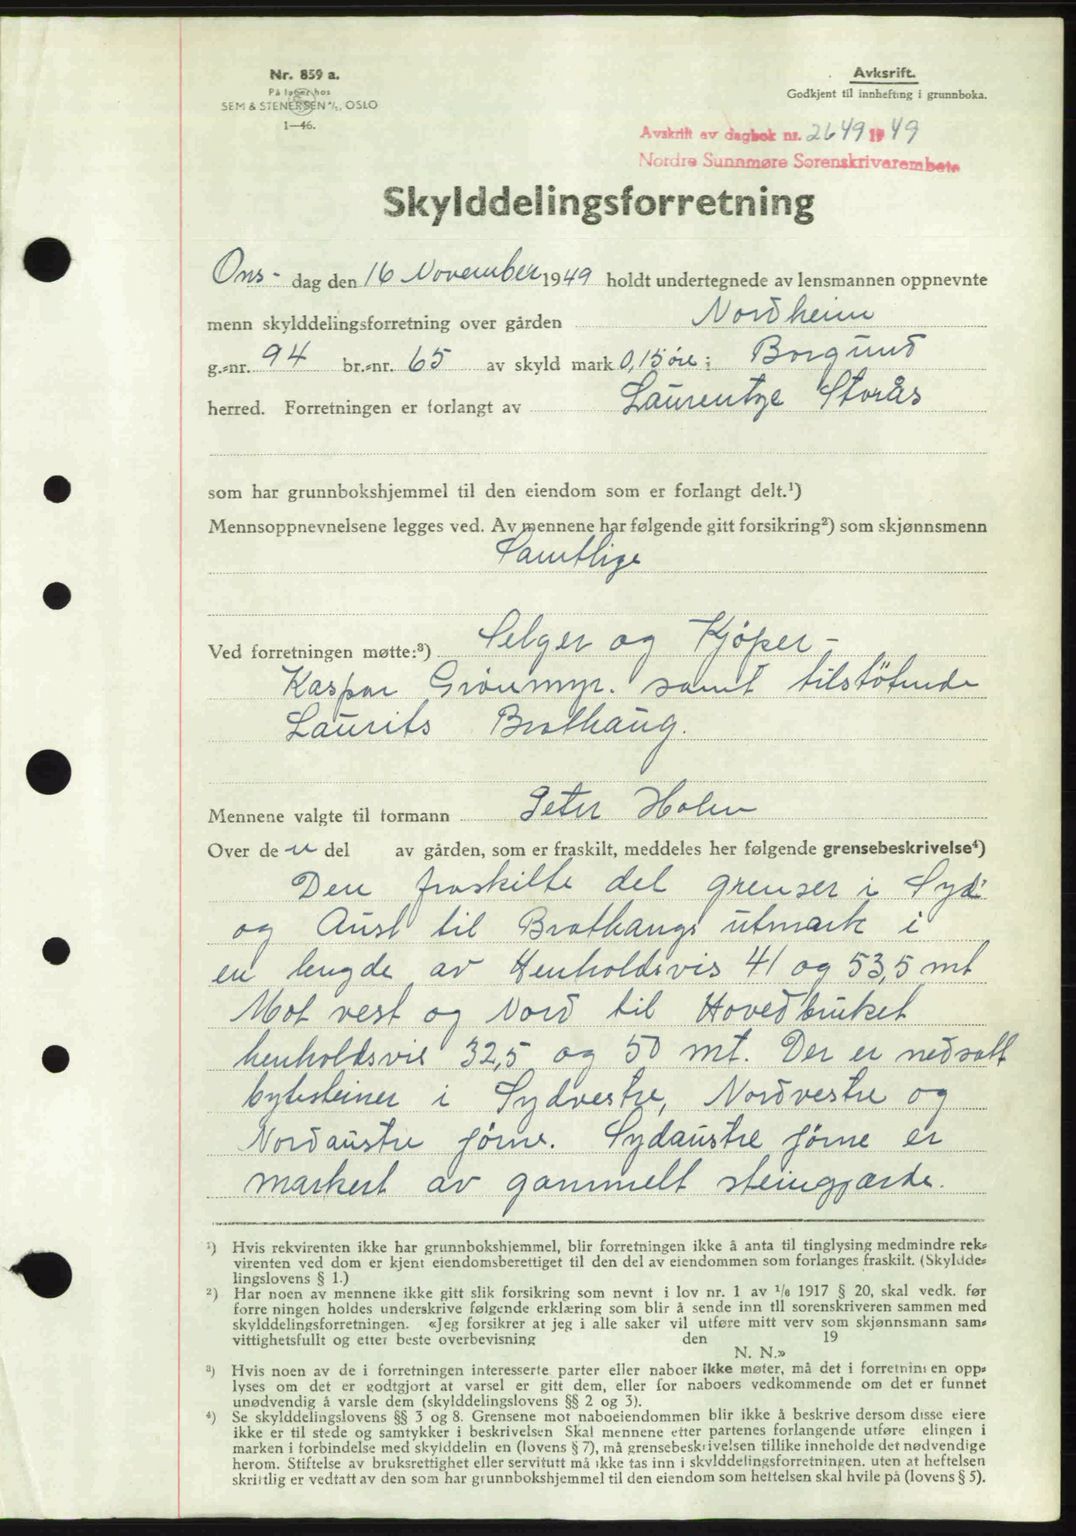 Nr. 859 a.
På lager hos
SEM & STENERSEN A/S, OSLO
1—46.
Avksrift.
Godkjent til innhefting i grunnboka.
Avskrift av dagbok nr. 2649 1949
Nordre Sunnmøre Sorenskrivarembete
Skylddelingsforretning
Ons- dag den 16 November 1949 holdt undertegnede av lensmannen oppnevnte
menn skylddelingsforretning over gården Nordheim
g.-nr. 94 br.-nr. 65 av skyld mark 0,15 øre i Borgund
herred. Forretningen er forlangt av Laurentze Storås
som har grunnbokshjemmel til den eiendom som er forlangt delt.¹)
Mennsoppnevnelsene legges ved. Av mennene har følgende gitt forsikring²) som skjønnsmenn
Samtlige
Ved forretningen møtte:³) Selger og Kjöper –
Kaspar Grönmyr. samt tilstötende
Laurits Brathaug.
Mennene valgte til formann Peter Holen
Over de n del av gården, som er fraskilt, meddeles her følgende grensebeskrivelse⁴)
Den fraskilte del grenser i Syd
og Aust til Brathaugs utmark i
en lengde av Henholdsvis 41 og 53,5 mt
Mot vest og Nord til Hovedbruket
henholdsvis 32,5 og 50 mt. Der er nedsatt
bytesteiner i Sydvestre, Nordvestre og
Nordaustre jörne. Sydaustre jörne er
markert av gammelt steingjærde.
¹) Hvis rekvirenten ikke har grunnbokshjemmel, blir forretningen ikke å anta til tinglysing medmindre rek-
virenten ved dom er kjent eiendomsberettiget til den del av eiendommen som forlanges fraskilt. (Skyldde-
lingslovens § 1.)
²) Har noen av mennene ikke gitt slik forsikring som nevnt i lov nr. 1 av ¹/₆ 1917 § 20, skal vedk. før
forre ningen holdes underskrive følgende erklæring som blir å sende inn til sorenskriveren sammen med
skylddelingsforretningen. «Jeg forsikrer at jeg i alle saker vil utføre mitt verv som skjønnsmann sam-
vittighetsfullt og etter beste overbevisning den 19
N. N.»
³) Hvis noen av de i forretningen interesserte parter eller naboer ikke møter, må det i forretnin en opp-
lyses om det er godtgjort at varsel er gitt dem, eller for naboers vedkommende om det er funnet
unødvendig å varsle dem (skylddelingslovens §§ 2 og 3).
⁴) Se skylddelingslovens §§ 3 og 8. Grensene mot naboeiendommen blir ikke å beskrive dersom disse eiere
ikke er til stede og samtykker i beskrivelsen Skal mennene etter partenes forlangende utføre elingen i
marken i forbindelse med skylddelin en (lovens § 7), må grensebeskrivelsen tillike inneholde det nødvendige
herom. Stiftelse av bruksrettighet eller servitutt må ikke tas inn i skylddelingsforretningen, uten at heftelsen
skriftlig er vedtatt av den som har grunnbokshjemmel til den eiendom som heftelsen skal hvile på (lovens § 5).